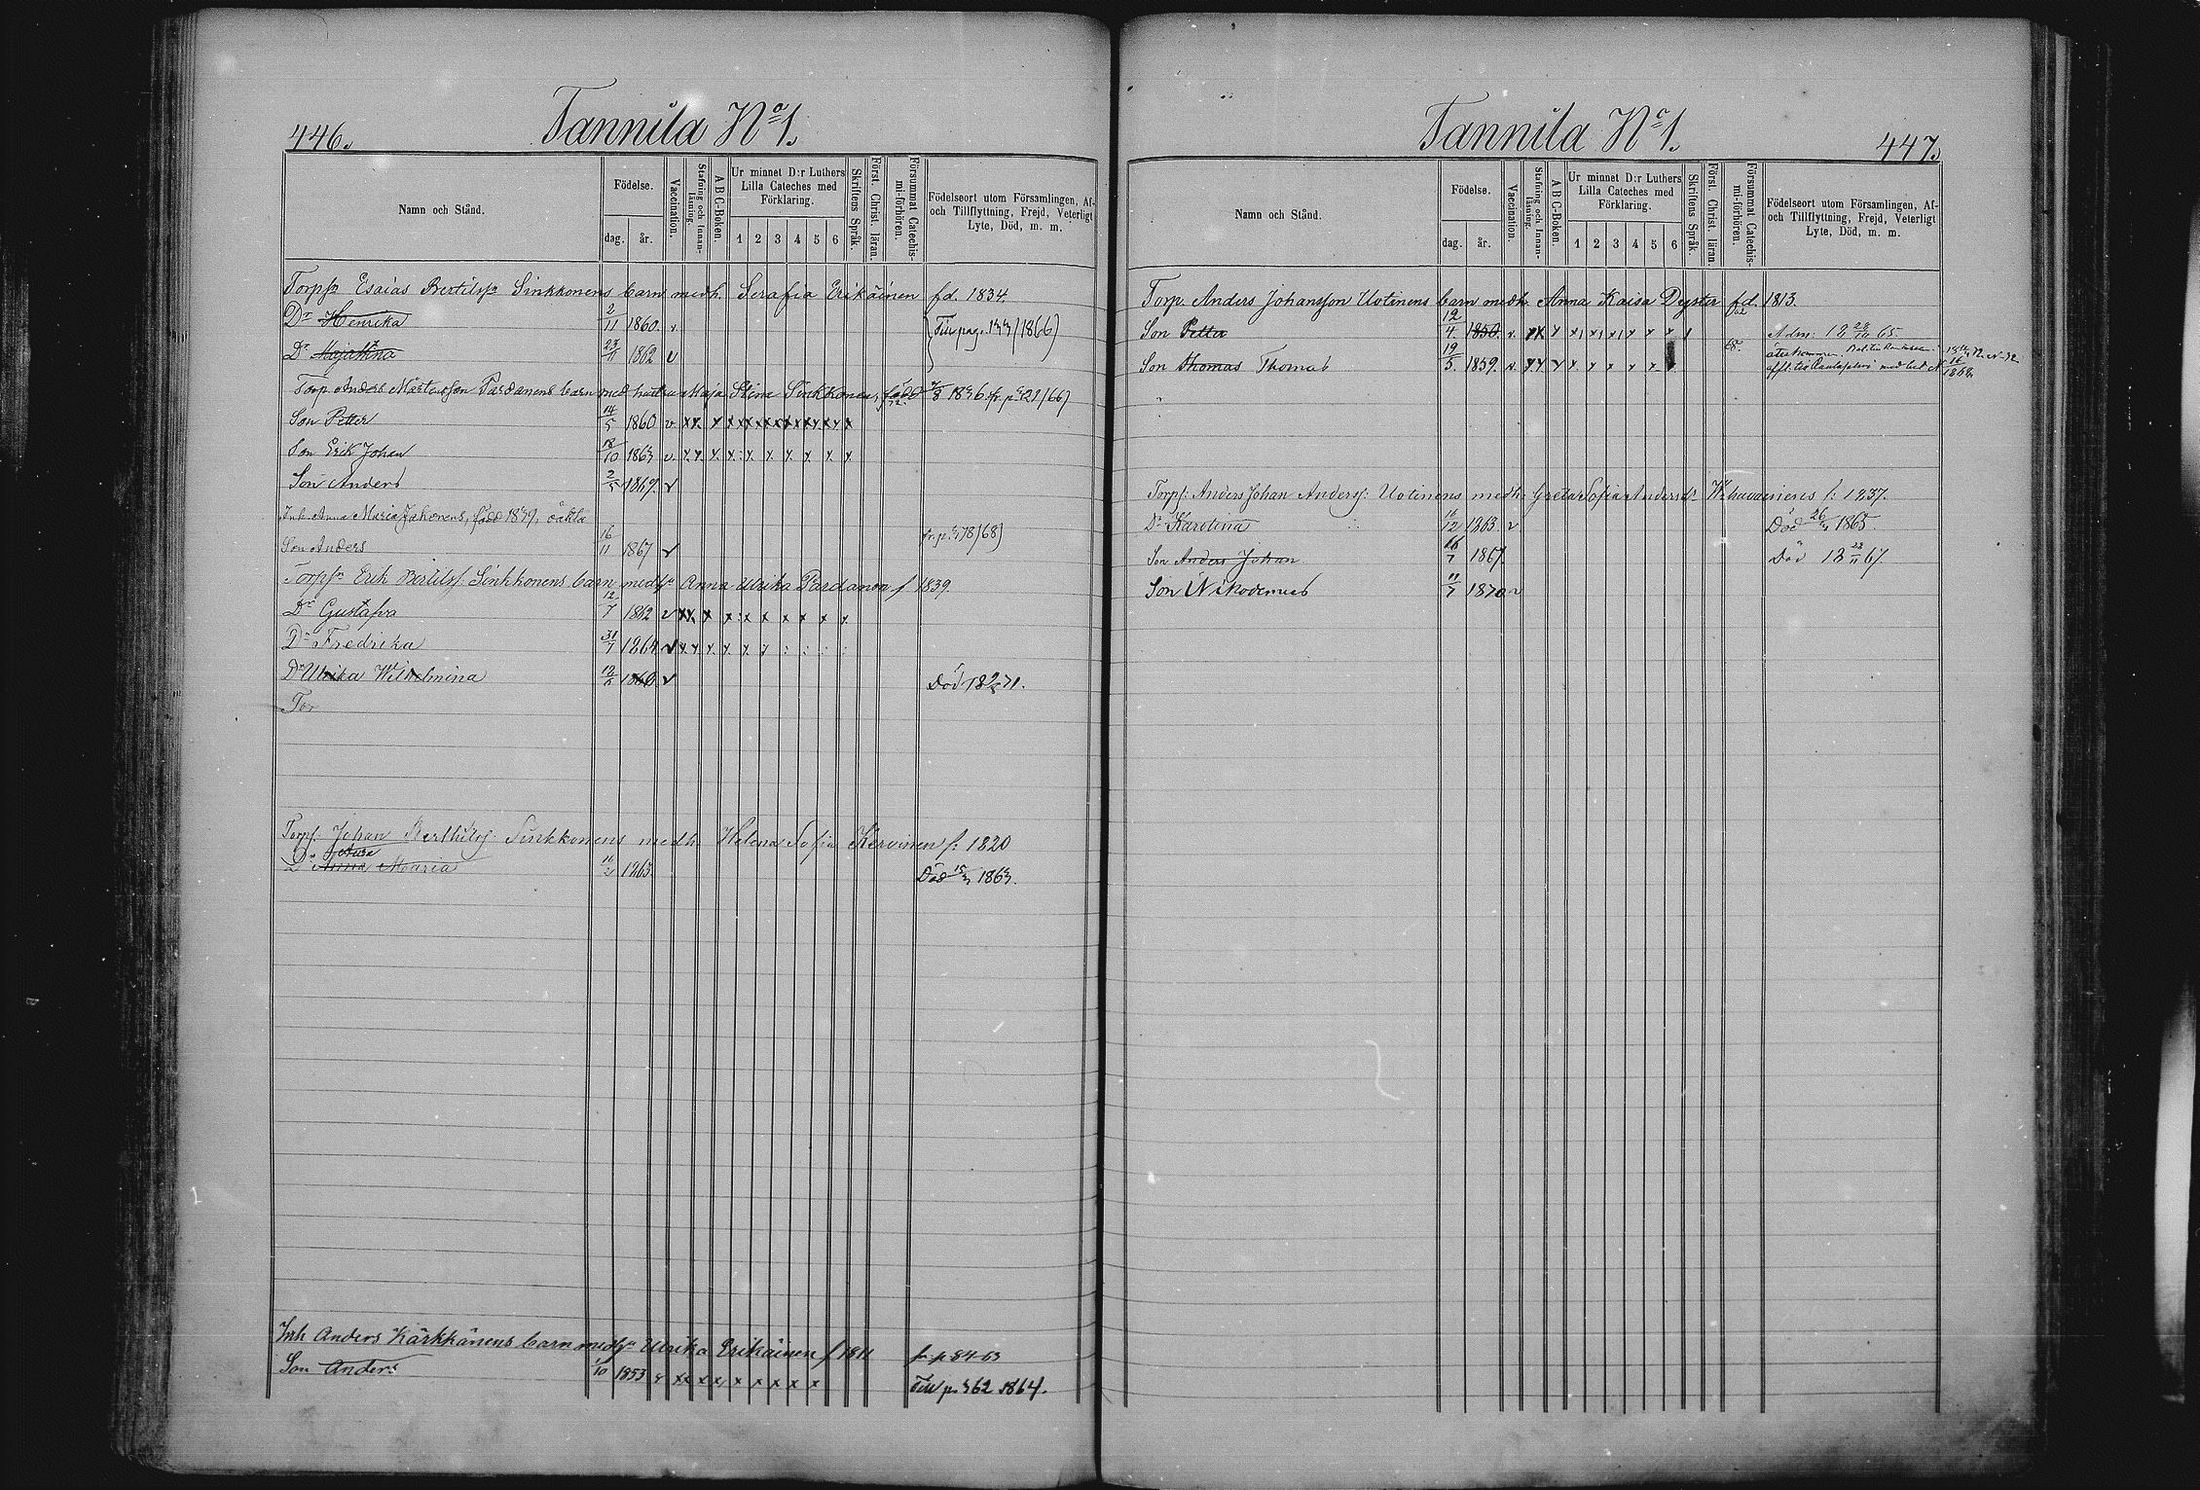 446.
Tannila No 1.
Namn och Stånd.
Födelse.
dag.
år.
Vaccination.
Stafning och Innanläsning.
A B C-Boken.
Ur minnet D:r Luthers Lilla Cateches med Förklaring.
1 2 3 4 5 6
Skriftens Språk.
Först. Christ. läran.
Försummat Catechismi-förhören.
Födelseort utom Församlingen, Af- och Tillflyttning, Frejd, Veterligt Lyte, Död, m. m.
Torpsn Esaias Bertilss Sinkkonens barn medh. Serafia Erikäinen fd. 1834.
Dr Henrika 2/11 1860. v.
Dr Maja Stina 23/11 1862 v
Torp. Anders Mårtensson Pardanens barn med hustru Maja Stina Sinkkonen, född
Son Petter 14/5 1860 v x x x x x x x x x x
Son Erik Johan 18/10 1863 v. x x x x x x x x x x
Son Anders 1869. v
Inh. Anna Maria född 1839, oäkta
Son Anders 16/11 1867 v
Torpsn Erik Bertilss. Sinkkonens barn medh Anna Ulrika Pardanen f 1839.
Dr Gustafva 12/7 1862 v x x x x x x x x x x
Dr Fredrika 31/7 1864 v x x x x x x
Dr Ulrika Wilhelmina v Död
To.
Torps. Johan Berthilss Sinkkonens medh Helena Sofia Kervinen f: 1820
Dr Anna Maria 1863. Död 1863.
Inh Anders Kärkkänens barn medh Ulrika Erikäinen f 1811 fr p 84-63
Son Anders 1/10 1853 x x x x x x x x x Till p. 362 1864.
Tannila No 1.
447.
Namn och Stånd.
Födelse.
dag.
år.
Vaccination.
Stafning och Innanläsning.
A B C-Boken.
Ur minnet D:r Luthers Lilla Cateches med Förklaring.
1 2 3 4 5 6
Skriftens Språk.
Först. Christ. läran.
Försummat Catechismi-förhören.
Födelseort utom Församlingen, Af- och Tillflyttning, Frejd, Veterligt Lyte, Död, m. m.
Torp. Anders Johansson Uotinens barn medh. Anna Kaisa Dyster fd. 1813.
Son Petter 12/4. 1850. v. x x x x x x x x x
Son Thomas Thomas 19/5. 1859. v. x x x x x x x x
Torps: Anders Johan Anderss: Uotinens medh Greta Sofia Andersdr f: 1837.
Dr Karolina 1863 v Död 1865.
Son Anders Johan 1867. Död 18 22/11 67.
Son Nikodemus 11/7 1870 v